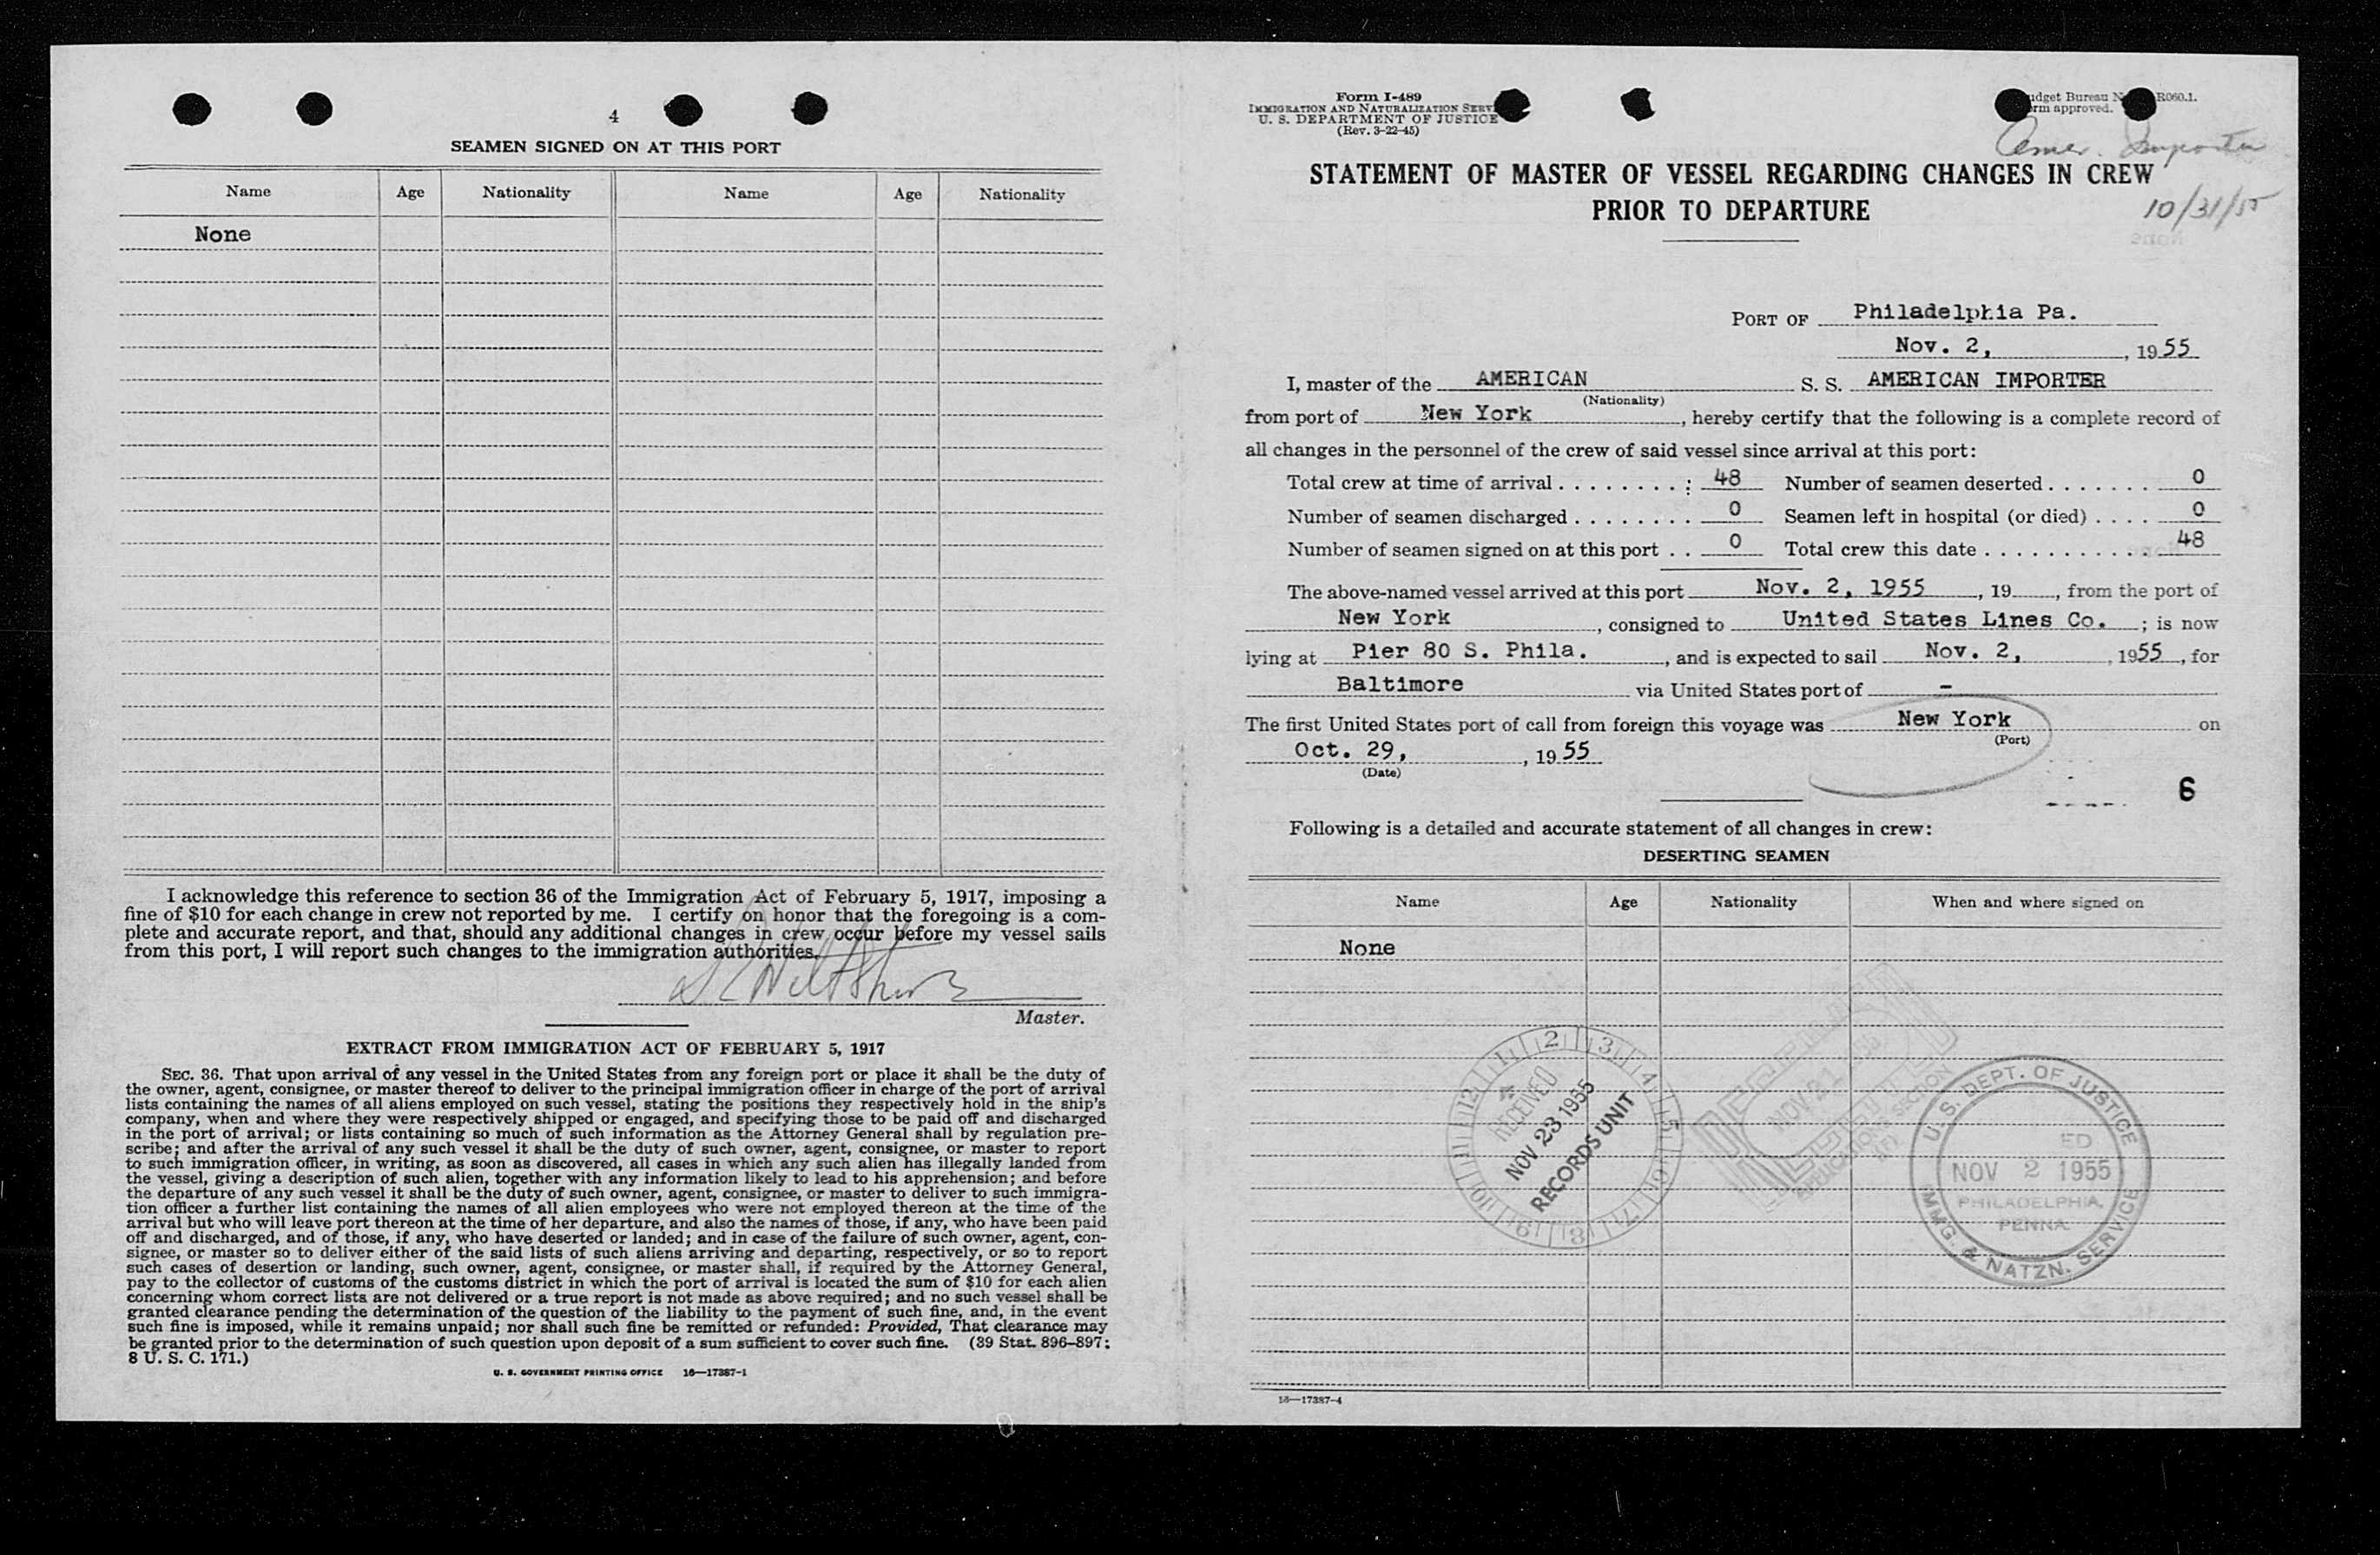 4
SEAMEN SIGNED ON AT THIS PORT
Name Age Nationality Name Age Nationality
None
I acknowledge this reference to section 36 of the Immigration Act of February 5, 1917, imposing a
fine of $10 for each change in crew not reported by me. I certify on honor that the foregoing is a com-
plete and accurate report, and that, should any additional changes in crew occur before my vessel sails
from this port, I will report such changes to the immigration authorities.
Master.
EXTRACT FROM IMMIGRATION ACT OF FEBRUARY 5, 1917
SEC. 36. That upon arrival of any vessel in the United States from any foreign port or place it shall be the duty of
the owner, agent, consignee, or master thereof to deliver to the principal immigration officer in charge of the port of arrival
lists containing the names of all aliens employed on such vessel, stating the positions they respectively hold in the ship's
company, when and where they were respectively shipped or engaged, and specifying those to be paid off and discharged
in the port of arrival; or lists containing so much of such information as the Attorney General shall by regulation pre-
scribe; and after the arrival of any such vessel it shall be the duty of such owner, agent, consignee, or master to report
to such immigration officer, in writing, as soon as discovered, all cases in which any such alien has illegally landed from
the vessel, giving a description of such alien, together with any information likely to lead to his apprehension; and before
the departure of any such vessel it shall be the duty of such owner, agent, consignee, or master to deliver to such immigra-
tion officer a further list containing the names of all alien employees who were not employed thereon at the time of the
arrival but who will leave port thereon at the time of her departure, and also the names of those, if any, who have been paid
off and discharged, and of those, if any, who have deserted or landed; and in case of the failure of such owner, agent, con-
signee, or master so to deliver either of the said lists of such aliens arriving and departing, respectively, or so to report
such cases of desertion or landing, such owner, agent, consignee, or master shall, if required by the Attorney General,
pay to the collector of customs of the customs district in which the port of arrival is located the sum of $10 for each alien
concerning whom correct lists are not delivered or a true report is not made as above required; and no such vessel shall be
granted clearance pending the determination of the question of the liability to the payment of such fine, and, in the event
such fine is imposed, while it remains unpaid; nor shall such fine be remitted or refunded: Provided, That clearance may
be granted prior to the determination of such question upon deposit of a sum sufficient to cover such fine. (39 Stat. 896–897;
8 U. S. C. 171.)
U. S. GOVERNMENT PRINTING OFFICE 16—17387-1
Form I-489
IMMIGRATION AND NATURALIZATION SERV
U. S. DEPARTMENT OF JUSTICE
(Rev. 3-22-45)
udget Bureau N R060.1.
rm approved.
Amer. Importer
10/31/55
STATEMENT OF MASTER OF VESSEL REGARDING CHANGES IN CREW
PRIOR TO DEPARTURE
PORT OF Philadelphia Pa.
Nov. 2, , 1955
I, master of the AMERICAN S. S. AMERICAN IMPORTER
(Nationality)
from port of New York , hereby certify that the following is a complete record of
all changes in the personnel of the crew of said vessel since arrival at this port:
Total crew at time of arrival . . . . . . . . : 48 Number of seamen deserted . . . . . . . 0
Number of seamen discharged . . . . . . . . 0 Seamen left in hospital (or died) . . . . 0
Number of seamen signed on at this port . . 0 Total crew this date . . . . . . . . . . . 48
The above-named vessel arrived at this port Nov. 2, 1955 , 19 , from the port of
New York , consigned to United States Lines Co. ; is now
lying at Pier 80 S. Phila. , and is expected to sail Nov. 2, , 1955 , for
Baltimore via United States port of -
The first United States port of call from foreign this voyage was New York on
(Port)
Oct. 29, , 1955
(Date)
6
Following is a detailed and accurate statement of all changes in crew:
DESERTING SEAMEN
Name Age Nationality When and where signed on
None
RECEIVED
NOV 23 1955
RECORDS UNIT
12 1 2 3 4 5 6 7 8 9 10 11
U. S. DEPT. OF JUSTICE
ED
NOV 2 1955
PHILADELPHIA,
PENNA.
IMMG. & NATZN. SERVICE
16—17387-4